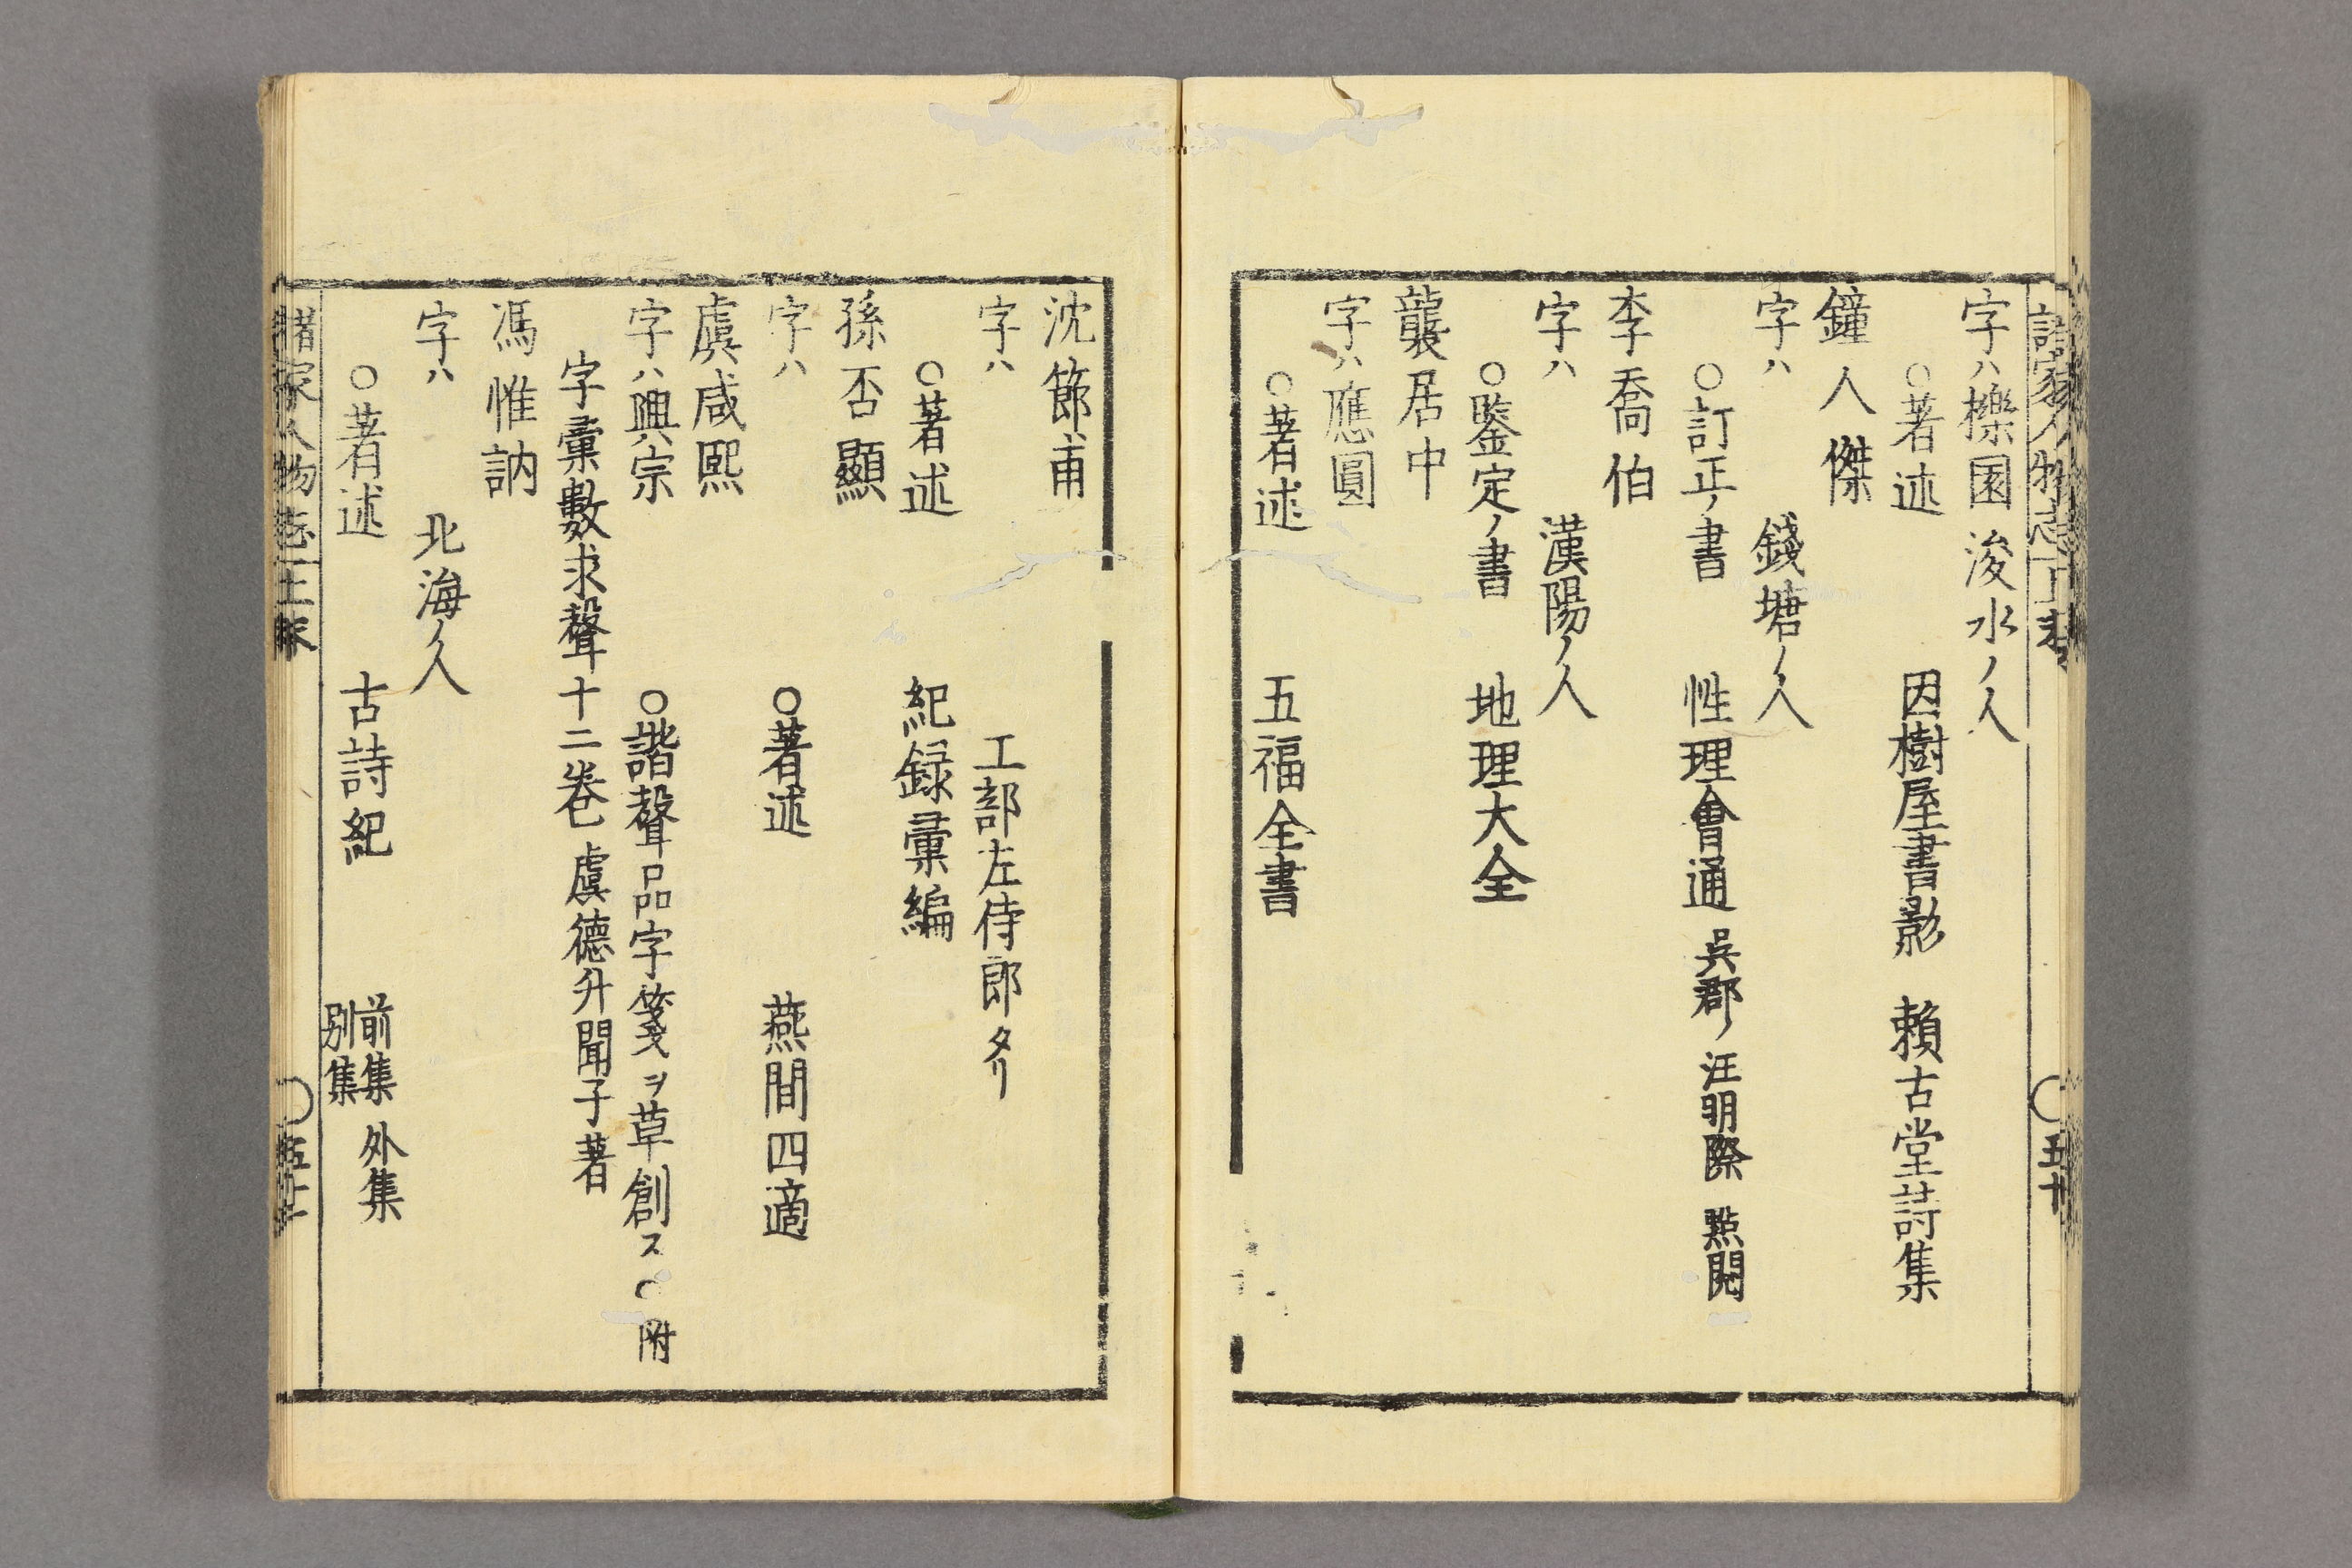 字ハ櫟園 浚水ノ人
○著述 因樹屋書影 賴古堂詩集
鐘人傑
字ハ 錢塘ノ人
○訂正ノ書 性理會通 呉郡ノ汪明際 㸃閲
李喬伯
字ハ 漢陽ノ人
○鑒定ノ書 地理大全
襲居中
字ハ應圓
○著述 五福全書
五十
沈節甫
字ハ 工部左侍郎タリ
○著述 紀録彙編
孫否顯
字ハ ○著述 燕間四適
虞咸熙
字ハ興宗 ○諧聲品字箋ヲ草創ス○附
字彙數求聲十二巻 虞德升聞子著
馮惟訥
字ハ 北海ノ人
○著述 古詩紀 前集 外集
別集